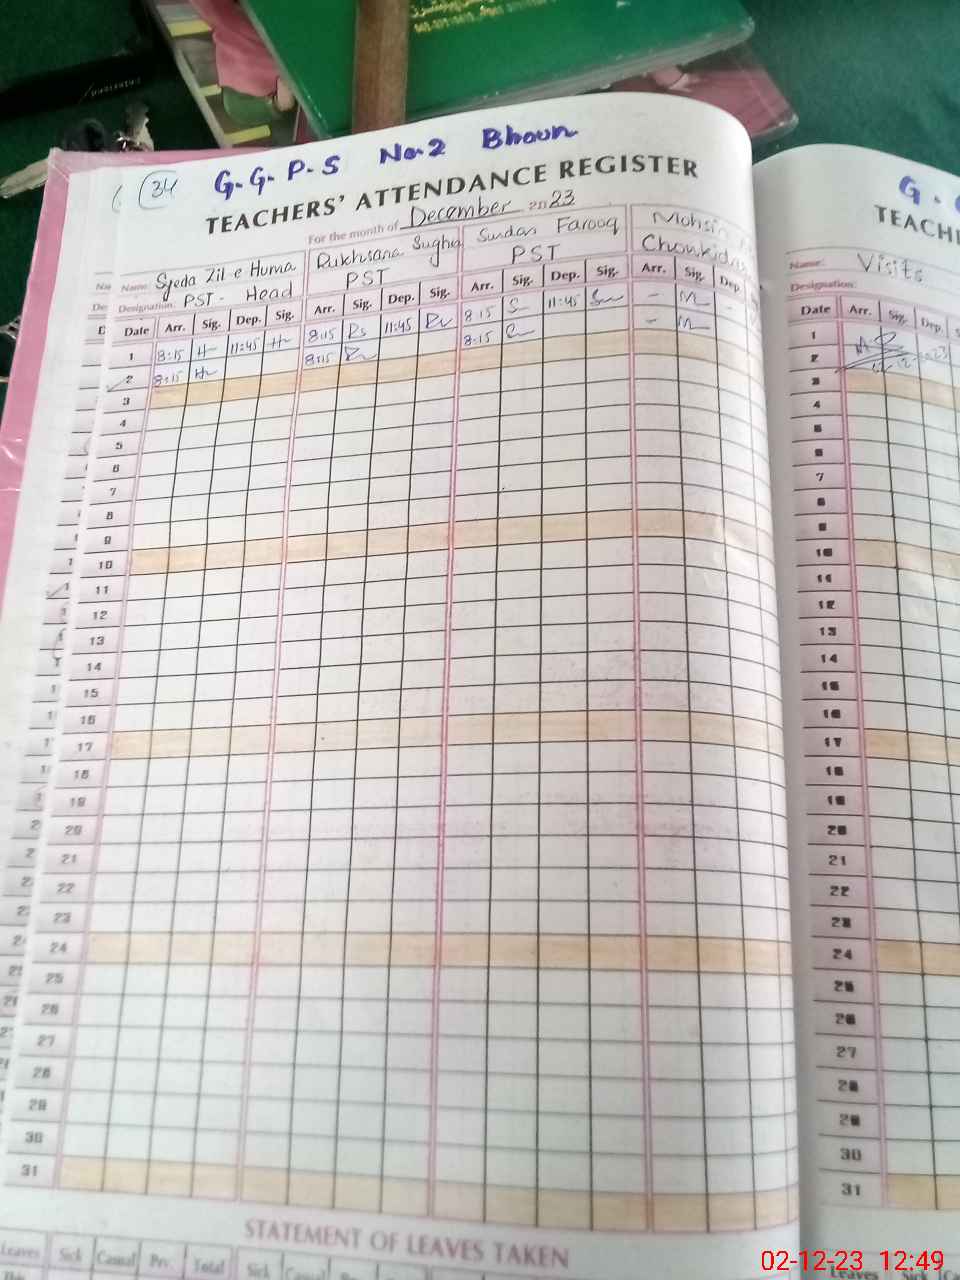 34
G.G.P.S No.2 Bhoun
TEACHERS' ATTENDANCE REGISTER
For the month of December 2023
Name: Syeda Zil e Huma Rukhsana Sughra Sundas Farooq Mohsin
Designation: PST - Head PST PST Chowkidar
Date Arr. Sig. Dep. Sig. Arr. Sig. Dep. Sig. Arr. Sig. Dep. Sig. Arr. Sig. Dep.
1 8:15 11:45 8:15 11:45 8:15 11:45 - -
2 8:15 8:15 8:15 -
3
4
5
6
7
8
9
10
11
12
13
14
15
16
17
18
19
20
21
22
23
24
25
26
27
28
29
30
31
STATEMENT OF LEAVES TAKEN
Leaves Sick Casual Prv. Total Sick Casual
G.
TEACH
Name: Visits
Designation:
Date Arr. Sig. Dep.
1
2
3
4
5
6
7
8
9
10
11
12
13
14
15
16
17
18
19
20
21
22
23
24
25
26
27
28
29
30
31
Leaves Sick
02-12-23 12:49